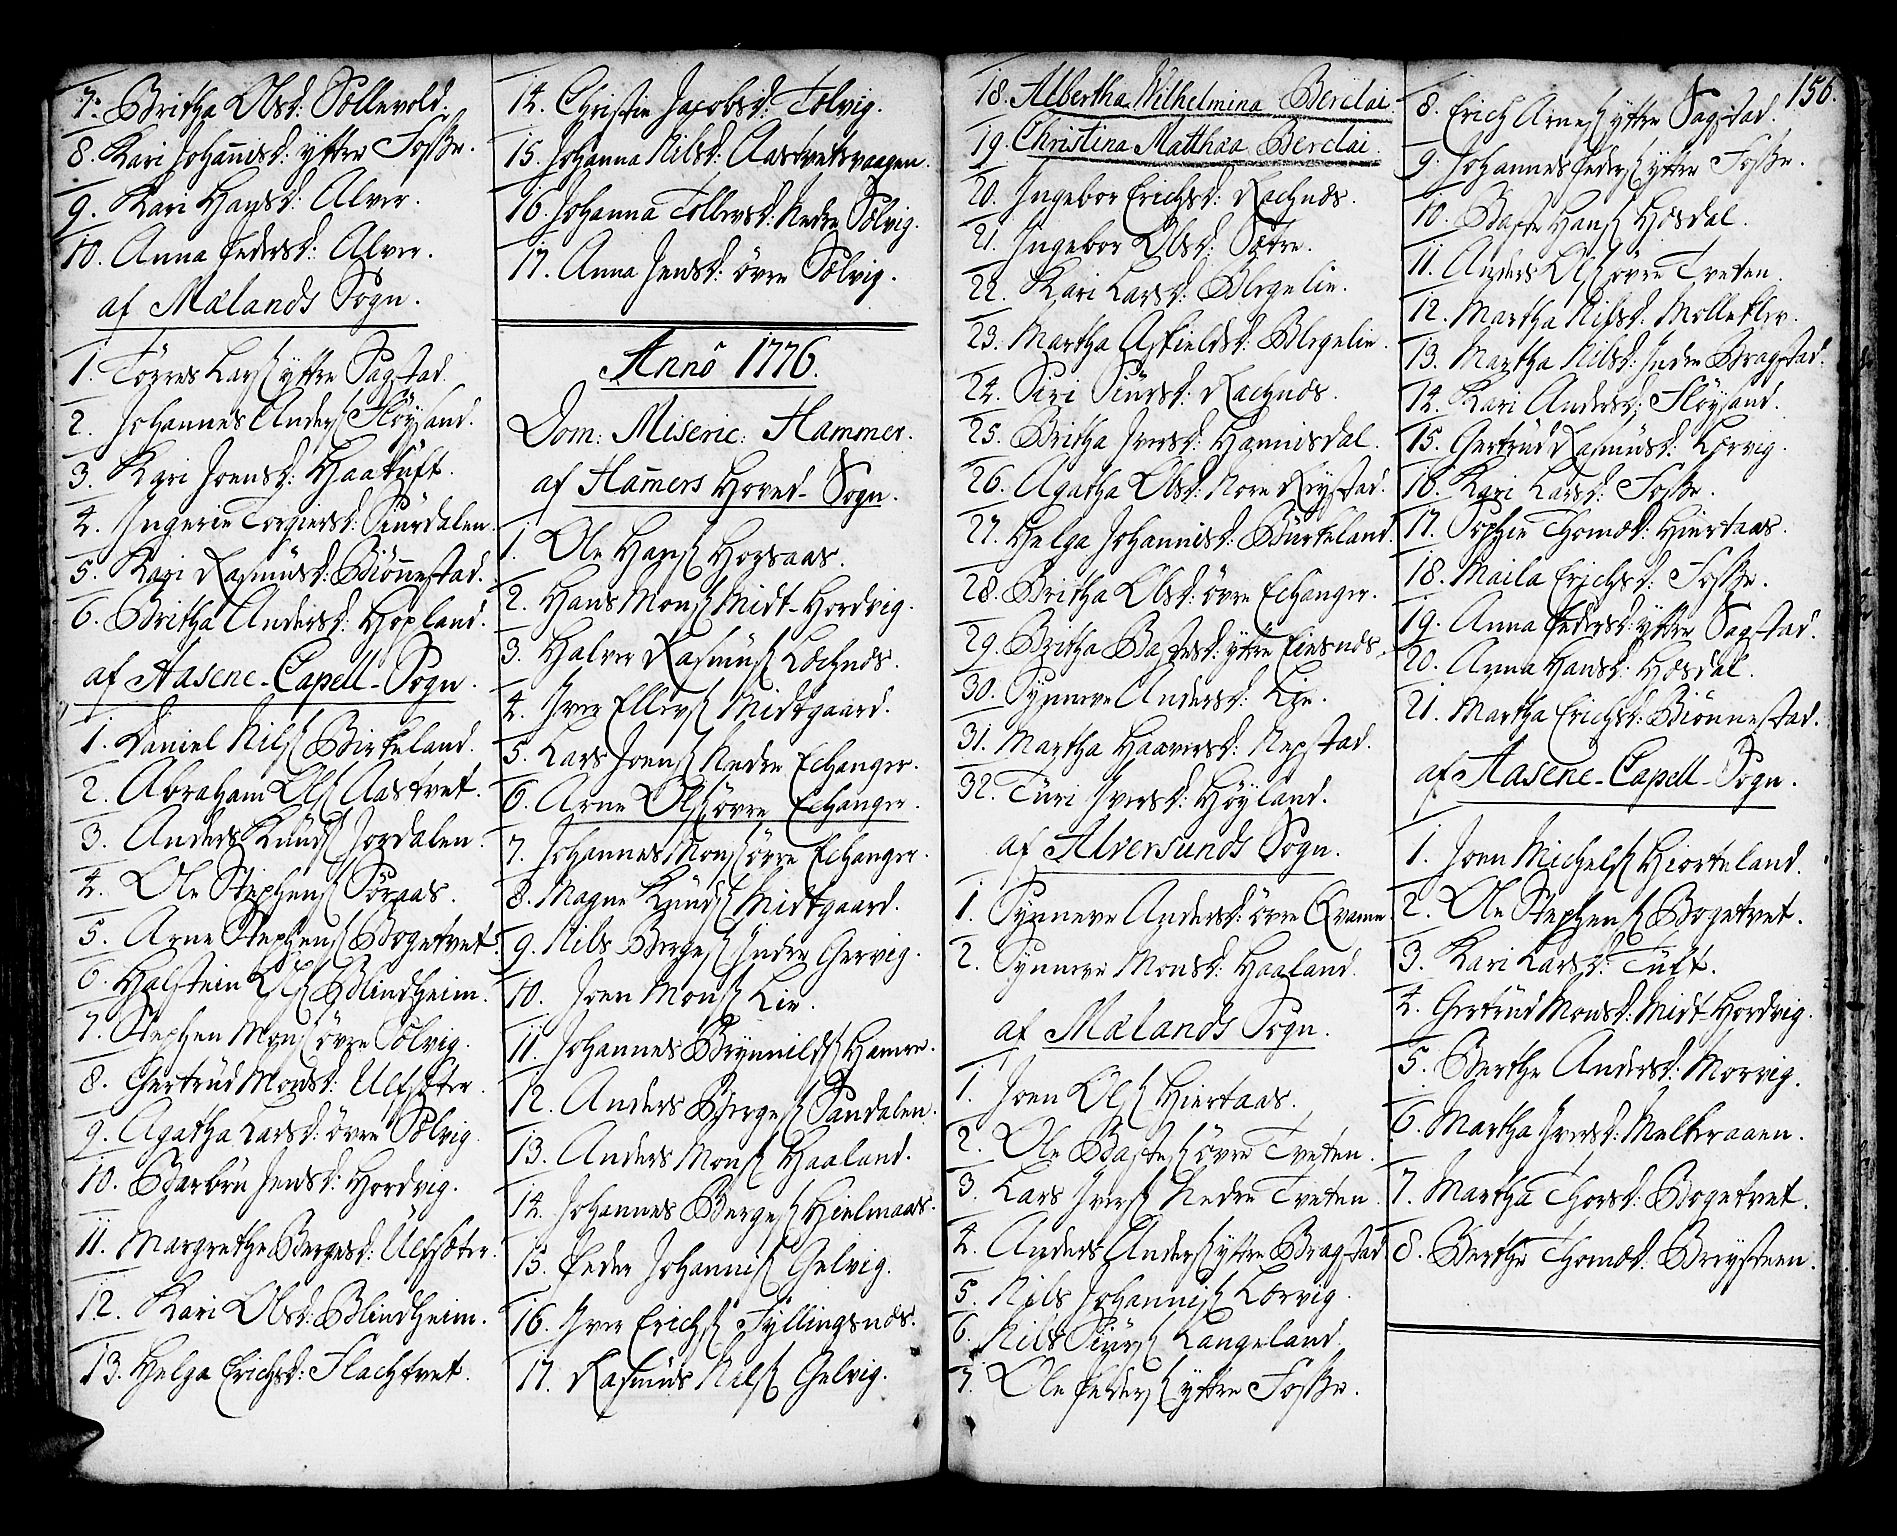 7. Britha Olsd: Söllevold.
8. Kari Johannisd: yttre Fosse.
9. Kari Hansd: Alver.
10. Anna Pedersd: Alver.
af Mælands Sogn.
1. Törres Lars: yttre Sagstad.
2. Johannes Anders: Flöysand.
3. Kari Joensd: Haatuft.
4. Ingerie Torgiersd: Siurdalen.
5. Kari Rasmusd: Biönnestad.
6. Britha Andersd: Hopland.
af Aasene-Capell-Sogn.
1. Daniel Nils: Birkeland.
2. Abraham Ols: Aastvet.
3. Anders Knuds: Jordalen.
4. Ole Stephens: Söraas.
5. Arne Stephens: Bogetvet.
6. Halstein Ols: Blindheim.
7. Stephen Mons: övre Sölvig.
8. Gertrud Monsd: Ulfsæter.
9. Agatha Larsd: övre Sölvig.
10. Barbru Jensd: Hordvig.
11. Margrethe Bergesd: Ulfsæter.
12. Kari Olsd: Blindheim.
13. Helga Erichsd: Flachtvet.
14. Christie Jacobsd: Tolvig.
15. Johanna Nilsd: Aastvetsvaagen.
16. Johanna Tollevsd: Nedre Sælvig.
17. Anna Jensd: övre Sælvig.
Anno 1776.
Dom: Miseric: Hammer.
af Hamers Hoved-Sogn.
1. Ole Hans: Horsaas.
2. Hans Mons: Midt-Hordvig.
3. Halvor Rasmus: Læchnes.
4. Iver Ellevs: Midtgaard.
5. Lars Joens: Nedre Echanger.
6. Arne Ols: övre Echanger.
7. Johannes Mons: övre Echanger.
8. Magne Knuds: Midtgaard.
9. Nils Berges: Indre Gervig.
10. Joen Mons: Lie.
11. Johannes Brynnilds: Hamre.
12. Anders Berges: Sandalen.
13. Anders Mons: Haaland.
14. Johannes Berges: Hielmaas.
15. Peder Johannis: Gelvig.
16. Iver Erichs: Fyllingsnæs.
17. Rasmus Nils: Gelvig.
18. Albertha Wilhelmina Berclai
19. Christina Matthæa Berclai.
20. Ingebor Erichsd: Rachnæs.
21. Ingebor Olsd: Sætre.
22. Kari Larsd: Blegelie.
23. Martha Asfieldsd: Blegelie.
24. Siri Siursd: Rachnæs.
25. Britha Iversd: Hannisdal.
26. Agatha Olsd: Nore Rivstad.
27. Helga Johannisd: Burkeland.
28. Britha Olsd: övre Echanger.
29. Britha Bastesd: yttre Eiesnæs.
30. Synneve Andersd: Lie.
31. Martha Haaversd: Nepstad.
32. Turi Iversd: Höyland.
af Alversunds Sogn.
1. Synneve Andersd: övre Qvamme
2. Synneve Monsd: Haaland.
af Mælands Sogn.
1. Joen Ols: Hiertaas.
2. Ole Bastes: övre Tveten.
3. Lars Ivers: Nedre Tveten.
4. Anders Anders: yttre Bragstad
5. Nils Johannis: Lörvig.
6. Nils Siurs: Langeland.
7. Ole Peders: yttre Fosse.
156.
8. Erich Arnes: yttre Sagstad.
9. Johannes Peders: yttre Fosse.
10. Baste Hans: Hosdal.
11. Anders Ols: övre Tveten.
12. Martha Nilsd: Mollekler.
13. Martha Nilsd: Indre Bragstad.
14. Kari Andersd: Flöysand.
15. Gertrud Rasmusd: Lörvig.
16. Kari Larsd: Fosse.
17. Sophie Thomæd: Hiertaas.
18. Maila Erichsd: Fosse.
19. Anna Pedersd: yttre Sagstad.
20. Anna Hansd: Hosdal.
21. Martha Erichsd: Biönnestad.
af Aasene-Capell-Sogn.
1. Joen Michels: Hiorteland.
2. Ole Stephens: Bogetvet.
3. Kari Larsd: Tuft.
4. Gertrud Monsd: Midt-Hordvig.
5. Berthe Andersd: Morvig.
6. Martha Iversd: Melkeraaen.
7. Martha Thorsd: Bogetvet.
8. Berthe Thomæd: Breysteen.